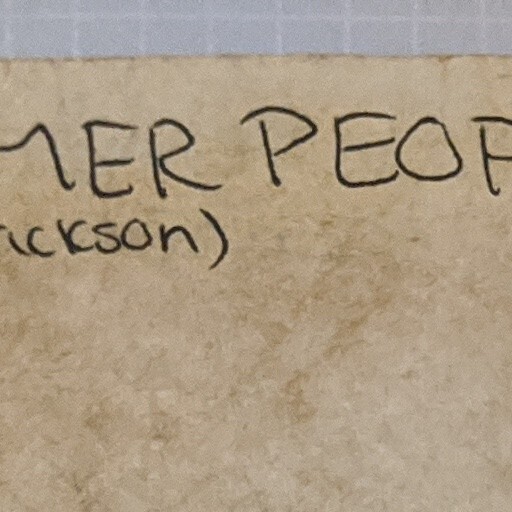 MER PEOP
ackson)